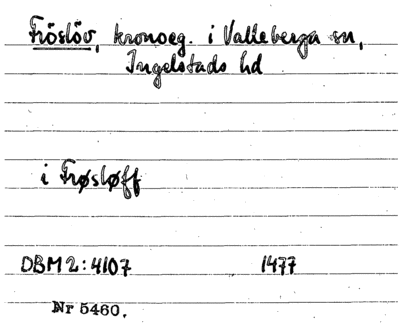 Fröslöv, kronoeg. i Valleberga sn,
Ingelstads hd
i Frøsløff
DBM 2:4107 1477
Nr 5460.